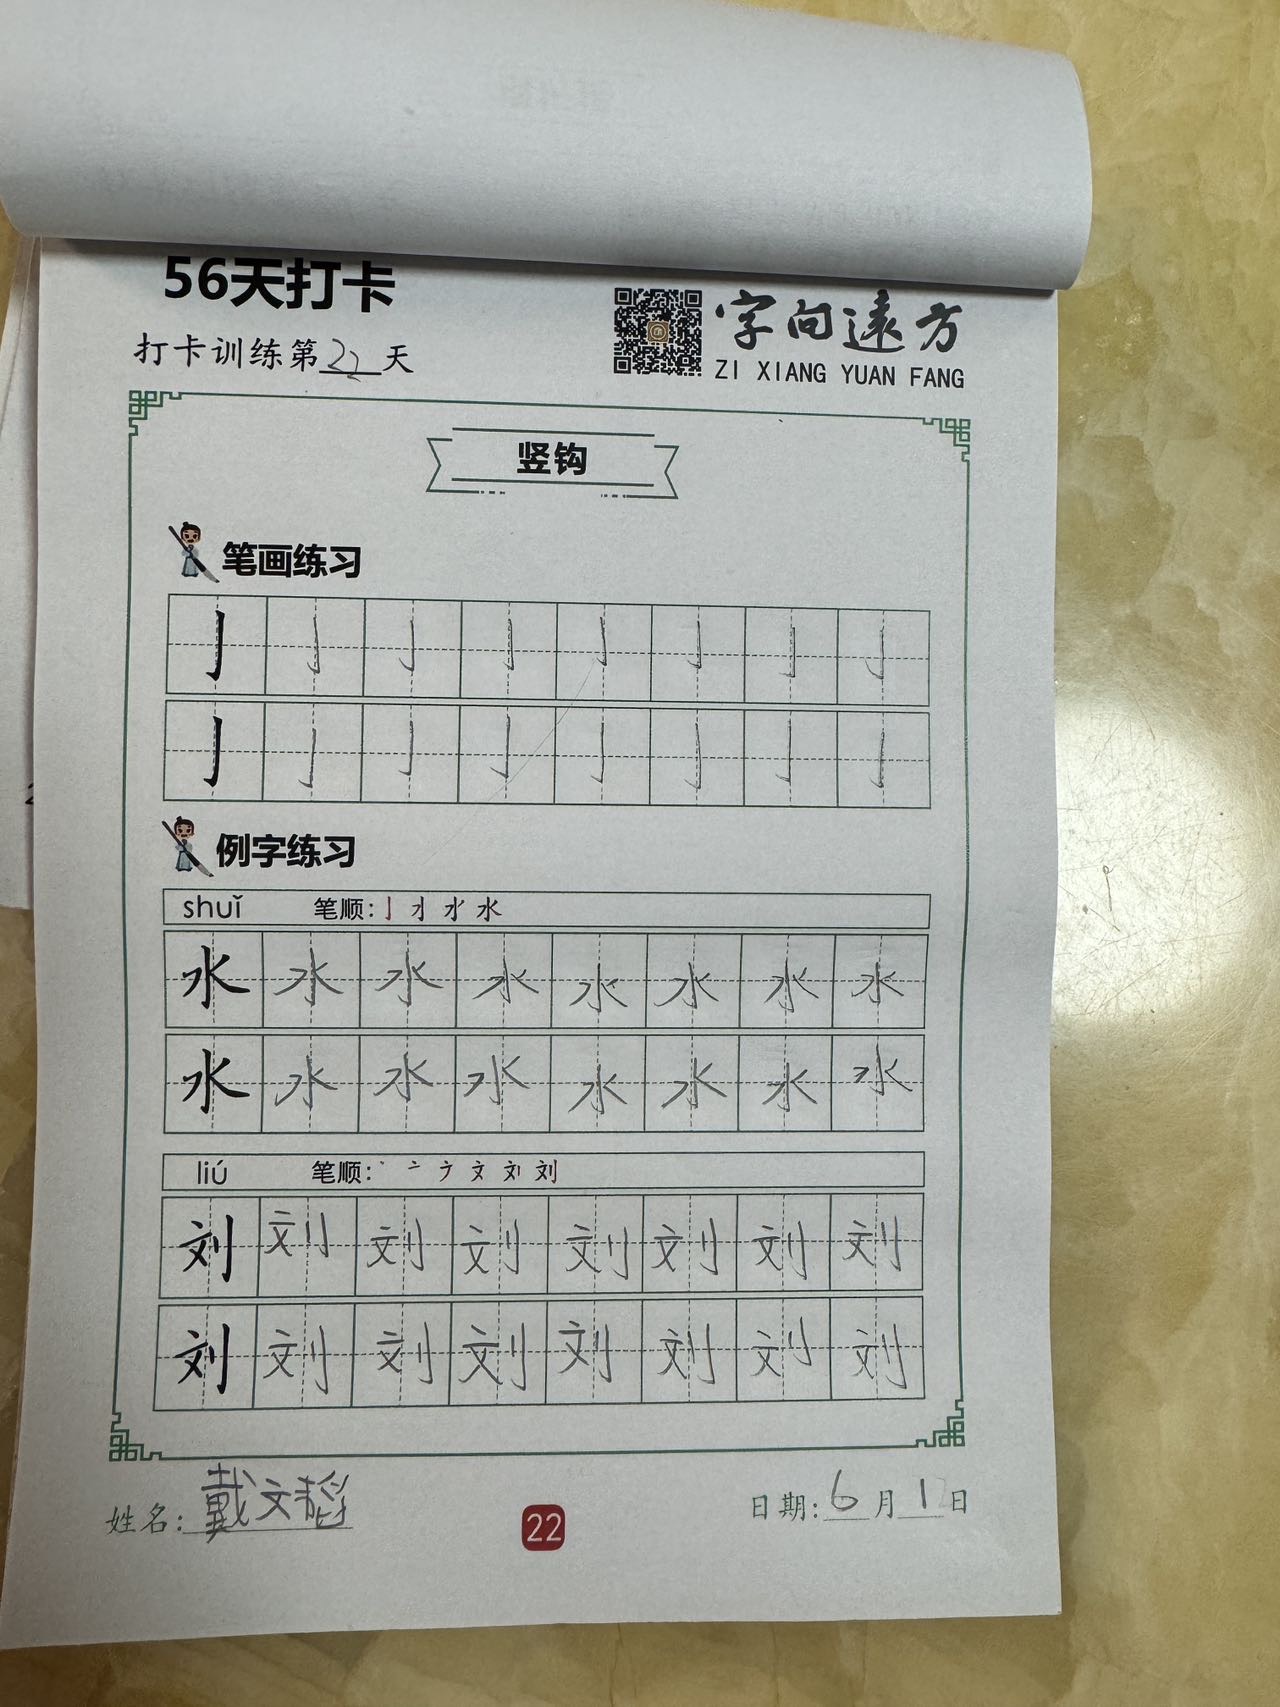 56天打卡
打卡训练第22天
字向遠方
ZI XIANG YUAN FANG
竖钩
笔画练习
亅亅亅亅亅亅亅亅
亅亅亅亅亅亅亅亅
例字练习
shuǐ 笔顺: 水
水水水水水水水水
水水水水水水水水
liú 笔顺: 丶 亠 ナ 文 刘
刘刘刘刘刘刘刘刘
刘刘刘刘刘刘刘刘
姓名: 戴文韬
22
日期: 6月1日